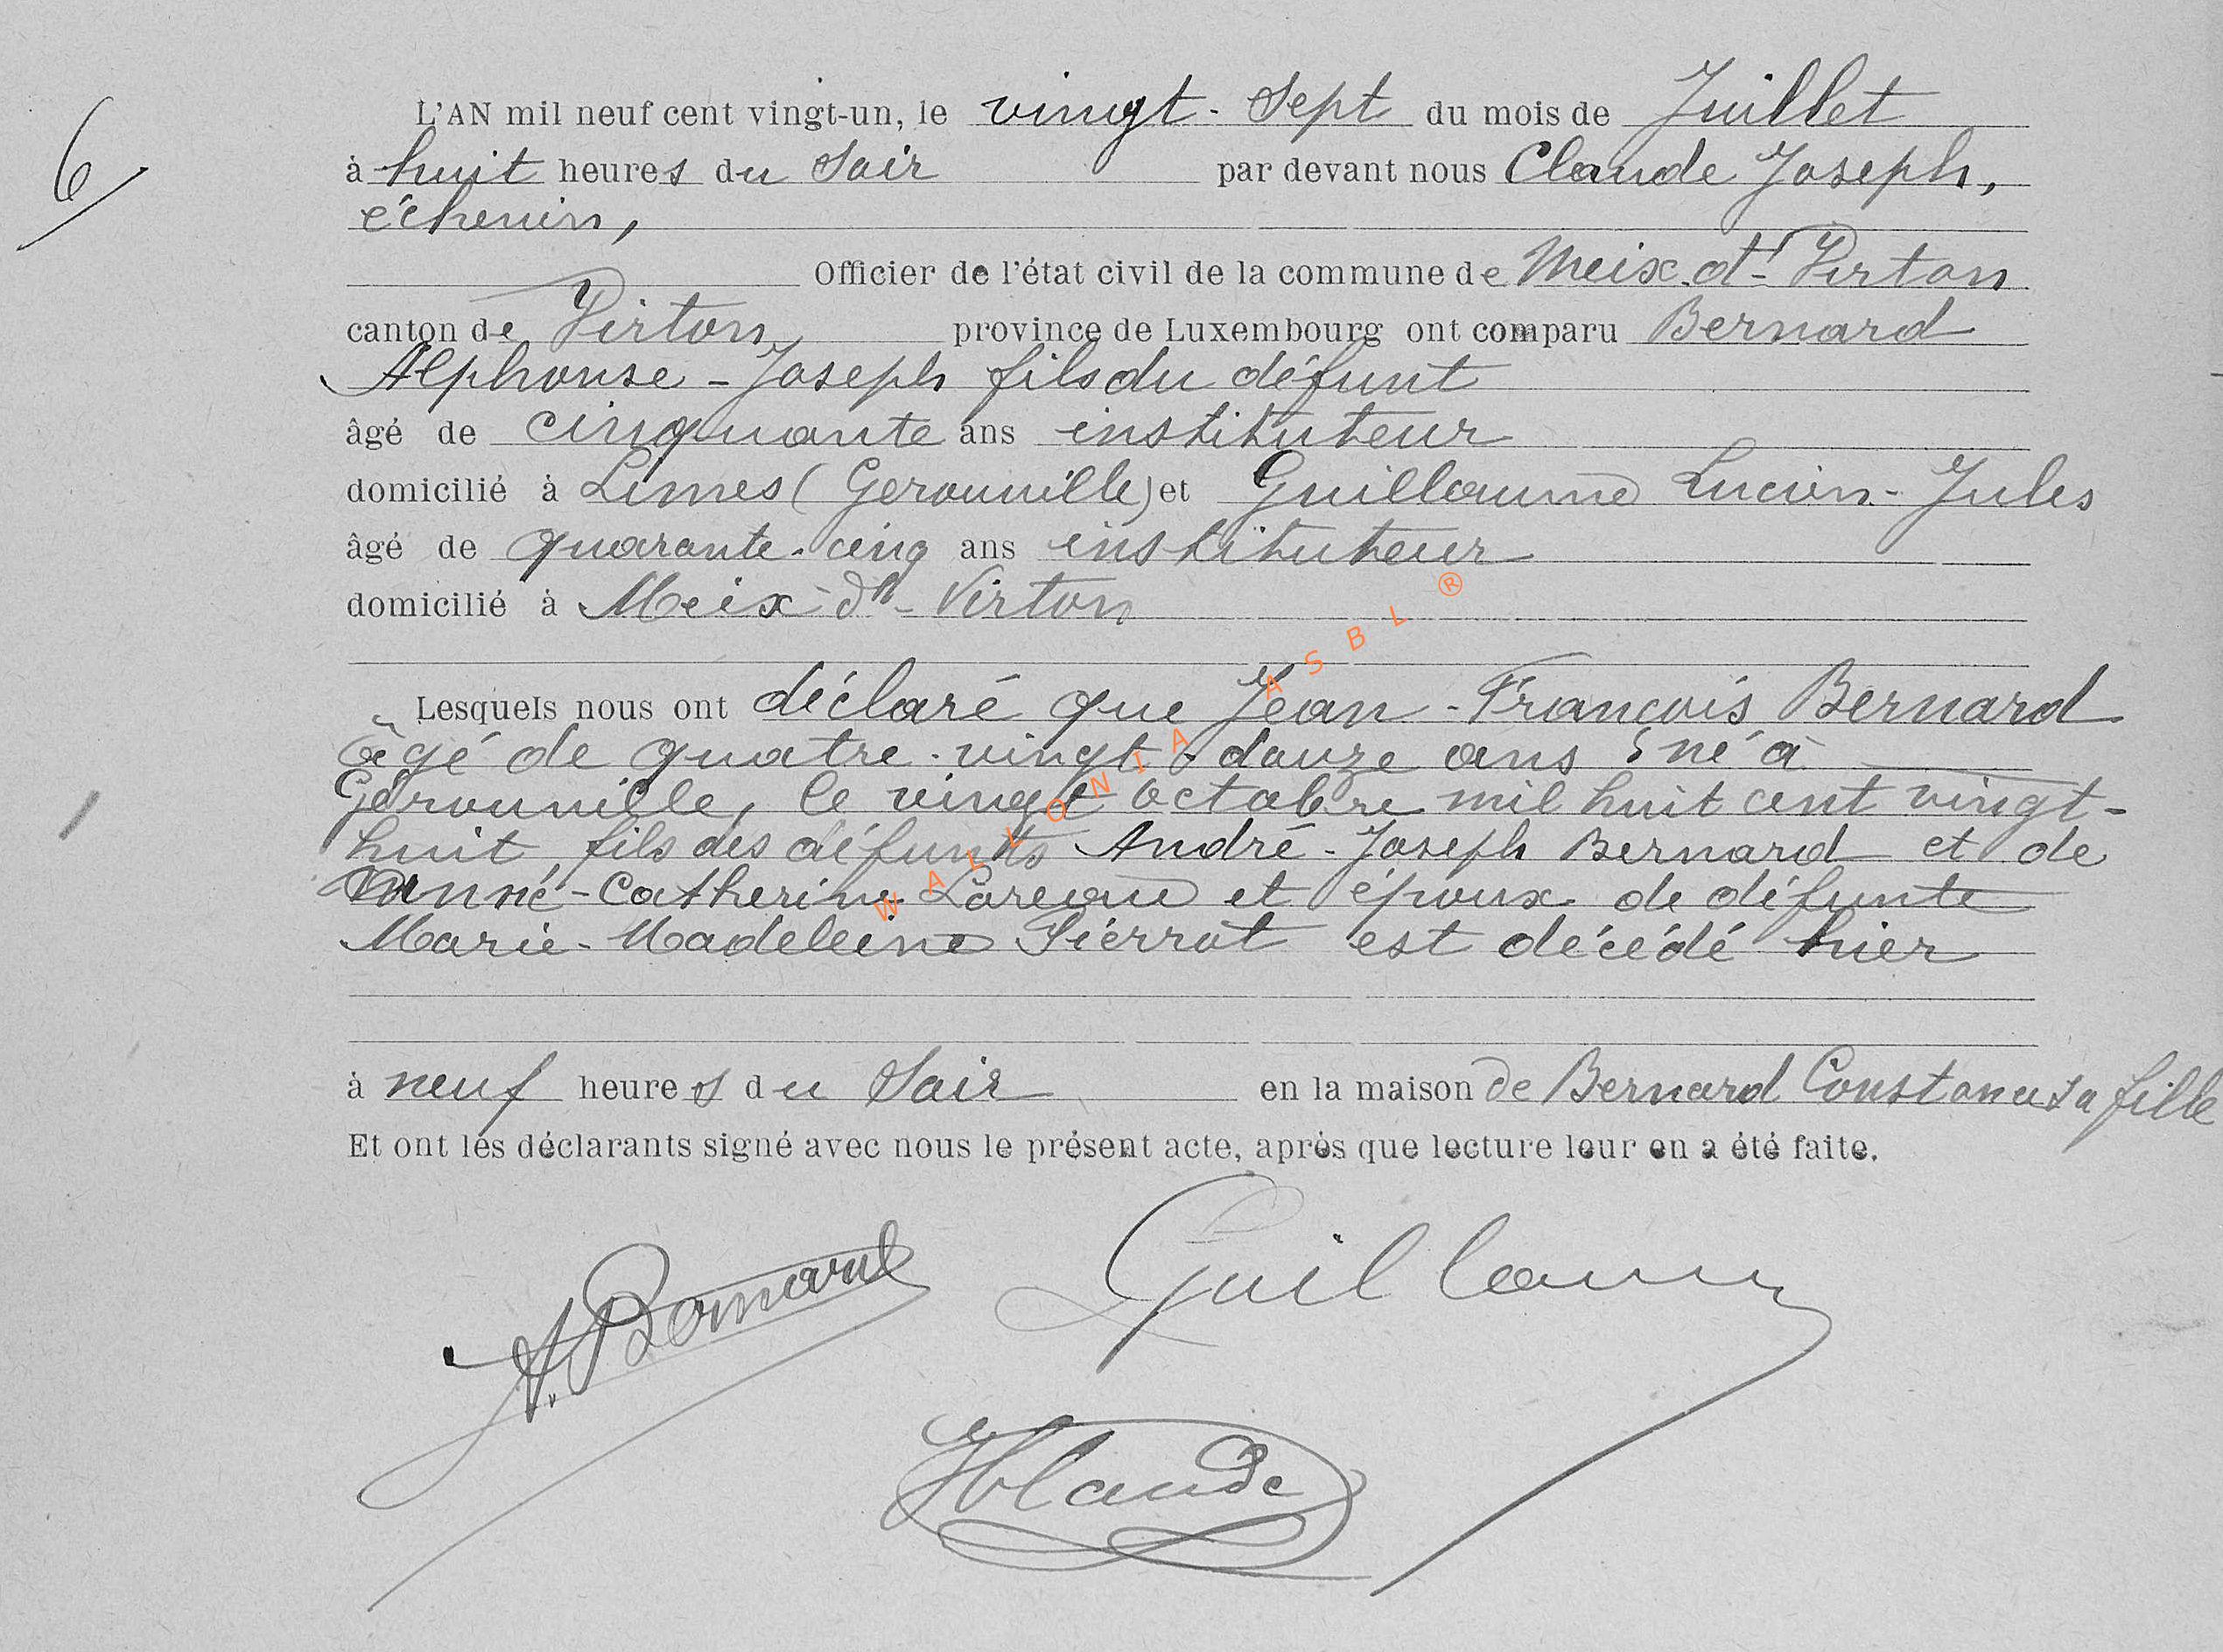 6
L'AN mil neuf cent vingt-un, le vingt-sept du mois de Juillet
à huit heures du soir par devant nous Claude Joseph,
échevin,
Officier de l'état civil de la commune de Meix-dt-Virton
canton de Virton province de Luxembourg ont comparu Bernard
Alphonse-Joseph fils du défunt
âgé de cinquante ans instituteur
domicilié à Limes (Gerouville) et Guillaume Lucien-Jules
âgé de quarante-cinq ans instituteur
domicilié à Meix-dt-Virton
Lesquels nous ont déclaré que Jean-François Bernard
âgé de quatre-vingt-douze ans né à
Gérouville, le vingt octobre mil huit cent vingt-
huit, fils des défunts André-Joseph Bernard et de
Anne-Catherine et époux de défunte
Marie-Madeleine Pierrot est décédé hier
à neuf heures du soir en la maison de Bernard Constance sa fille
Et ont les déclarants signé avec nous le présent acte, après que lecture leur en a été faite.
A. Bernard
Guillaume
JClaude
WALLONIA ASBL ®